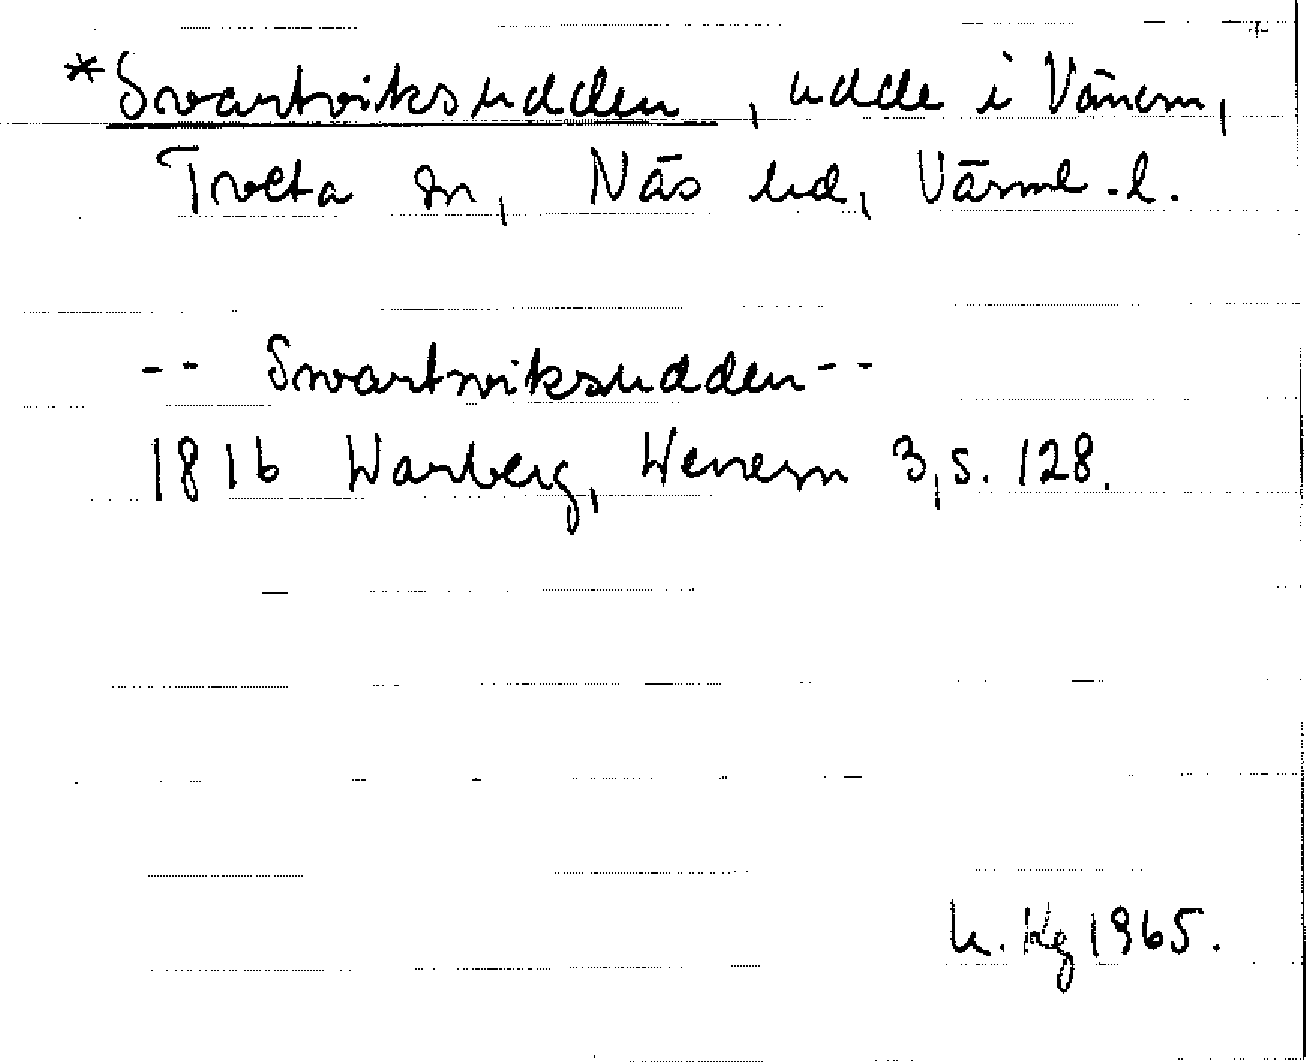 *Svartviksudden, udde i Vänern,
Tveta sn, Näs hd, Värml. l.
-- Svartviksudden --
1816 Warberg, Wenern 3, s. 128.
1965.